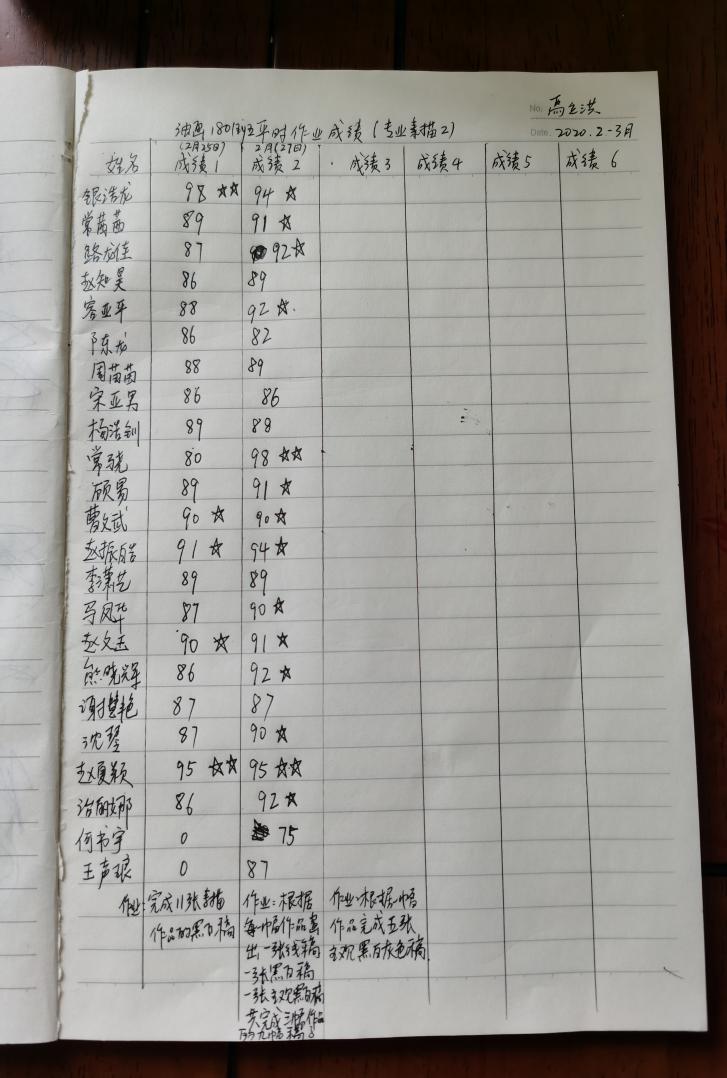 No. 高立洪
油画1801班平时作业成绩(专业素描2)
Date. 2020.2-3月
(2月25日) 2月(27日)
姓名 成绩1 成绩2 成绩3 成绩4 成绩5 成绩6
银浩龙 98 ☆☆ 94 ☆
常茜茜 89 91 ☆
路龙佳 87 92☆
赵知昊 86 89
容亚平 88 92☆.
陈东龙 86 82
周苗苗 88 89
宋亚男 86 86
杨浩钏 89 88
常骁 80 98 ☆☆
顾易 89 91 ☆
曹文武 90 ☆ 90☆
赵振皓 91 ☆ 94☆
李潇艺 89 89
马凤华 87 90☆
赵文玉 90 ☆ 91 ☆
熊晓军 86 92 ☆
谢慧艳 87 87
沈琴 87 90 ☆
赵夏颖 95 ☆☆ 95 ☆☆
娜 86 92☆
何书宇 0 75
王声琅 0 87
作业:完成11张素描 作业:根据 作业:根据一幅
作品的黑白稿 每一幅作品画 作品完成五张
出一张线稿 主观黑白灰色稿
一张黑白稿
一张主观黑白稿
共完成三幅作品
的九幅稿子